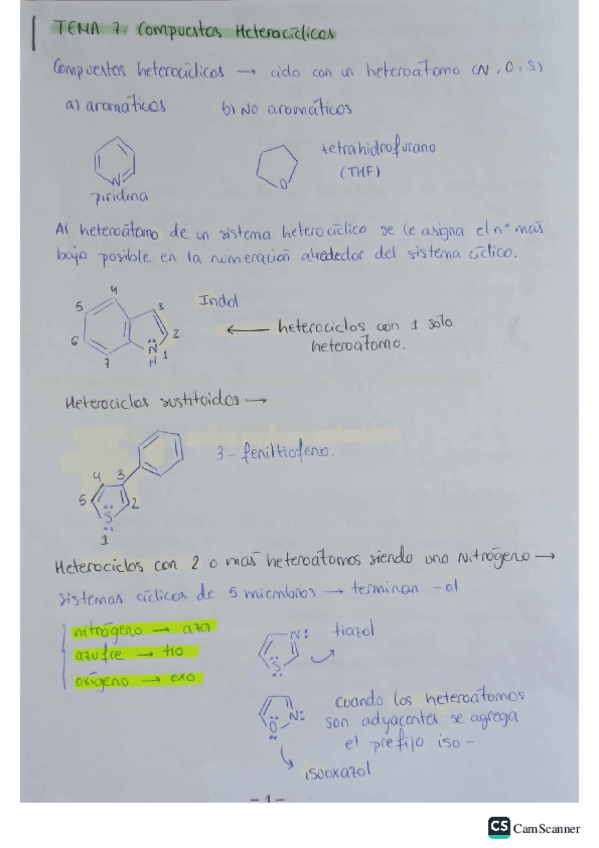 TEMA 7: Compuestos Heterocíclicos
Compuestos heterocíclicos → ciclo con un heteroátomo (N, O, S)
a) aromáticos b) No aromáticos
tetrahidrofurano
(THF)
N
O
piridina
Al heteroátomo de un sistema heterocíclico se le asigna el nº más
bajo posible en la numeración alrededor del sistema cíclico.
4
5 3 Indol
6 2 ← heterociclos con 1 solo
heteroátomo.
7 N 1
H
Heterociclos sustituidos →
3-feniltiofeno.
4 3
5 2
S
1
Heterociclos con 2 o más heteroátomos siendo uno Nitrógeno →
sistemas cíclicos de 5 miembros → terminan -ol
nitrógeno → aza
azufre → tio
oxígeno → oxo
N: tiazol
S
cuando los heteroátomos
son adyacentes se agrega
el prefijo iso-
O N:
isooxazol
-1-
CS CamScanner